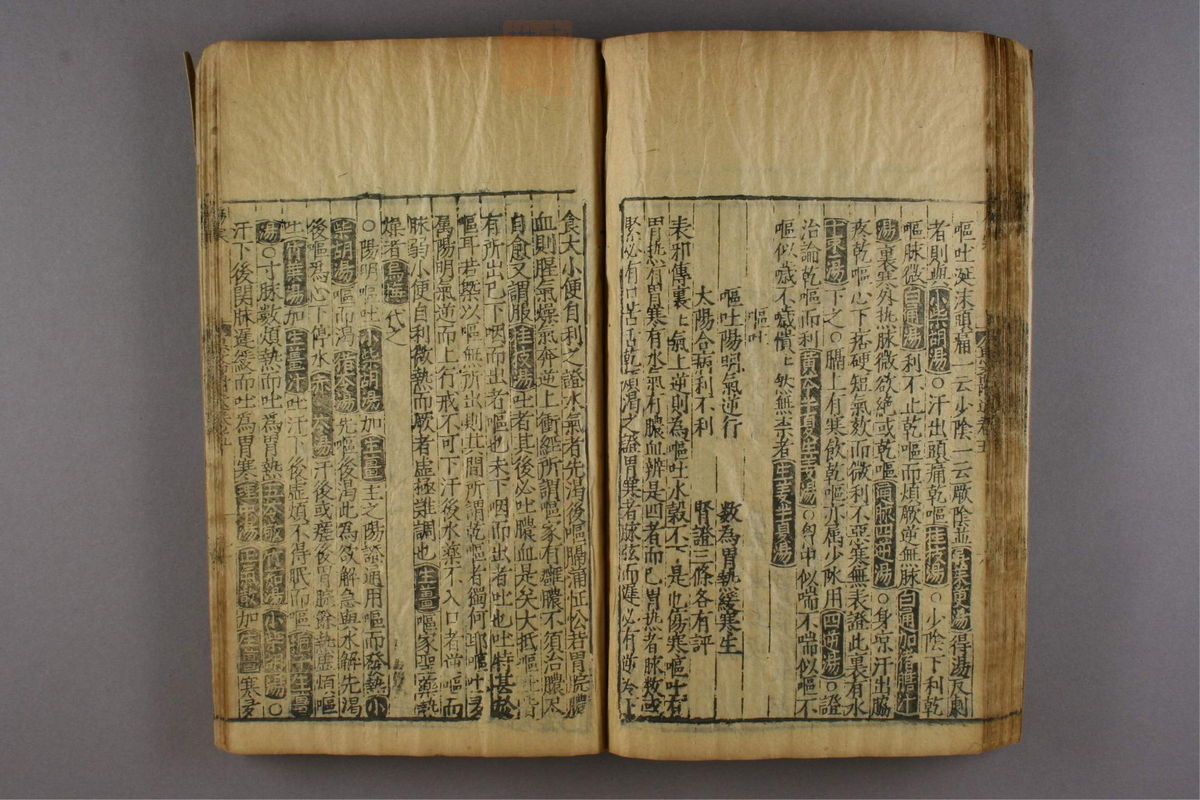 嘔吐涎沫頭痛一云少陰一云厥陰並吳茱萸湯得湯反劇
者則與小柴胡湯○汗出頭痛乾嘔桂枝湯○少陰下利乾
嘔脉微白通湯利不止乾嘔而煩厥逆無脉白通加猪膽汁
湯裏寒外热脉微欲絶或乾嘔通脉四逆湯○身凉汗出脇
疼乾嘔心下痞硬短氣欬而微利不惡寒無表證此裏有水
十棗湯下之○膈上有寒飲乾嘔亦属少陰用四逆湯○證
治論乾嘔而利黄芩半夏生姜湯○匈中似喘不喘似嘔不
嘔似噦不噦憒憒然無柰者生姜半夏湯
嘔吐
嘔吐陽明氣逆行 数為胃热緩寒生
太陽合病利不利 腎證三條各有評
表邪傳裏裏氣上逆則為嘔吐水榖不下是也傷寒嘔吐有
胃热有胃寒有水氣有膿血辨是四者而已胃热者脉数或
緊必有口苦舌乾煩渴之證胃寒者脉弦而遲必有逆冷
食大小便自利之證水氣者先渴後嘔膈涌怔忪若胃脘膿
血則腥氣燥氣奔逆上衝經所謂嘔家有癰膿不須治膿尽
自愈又謂服桂枝湯吐者其後必吐膿血是矣大抵嘔吐皆
有所出已下咽而出者嘔也未下咽而出者吐也吐特甚於
嘔耳若槩以嘔無所出則其間所謂乾嘔者獨何耶嘔吐多
属陽明氣逆而上行戒不可下汗後水藥不入口者逆嘔而
脉弱小便自利微热而厥者虚極難調也生薑嘔家聖藥熱
燥者烏梅代之
○陽明嘔吐小柴胡湯加生薑主之陽證通用嘔而發熱小
柴胡湯嘔而渴猪苓湯先嘔後渴此為欲解急與水解先渴
後嘔為心下停水赤苓湯汗後或瘥後胃脘餘熱虚煩嘔
吐竹茹湯加生薑汁吐汗下後虚煩不得眠而嘔梔子生薑
湯○寸脉数煩熱而吐為胃熱五苓散竹茹湯小柴胡湯○
汗下後関脉遲緩而吐為胃寒理中湯正氣散加生薑寒多